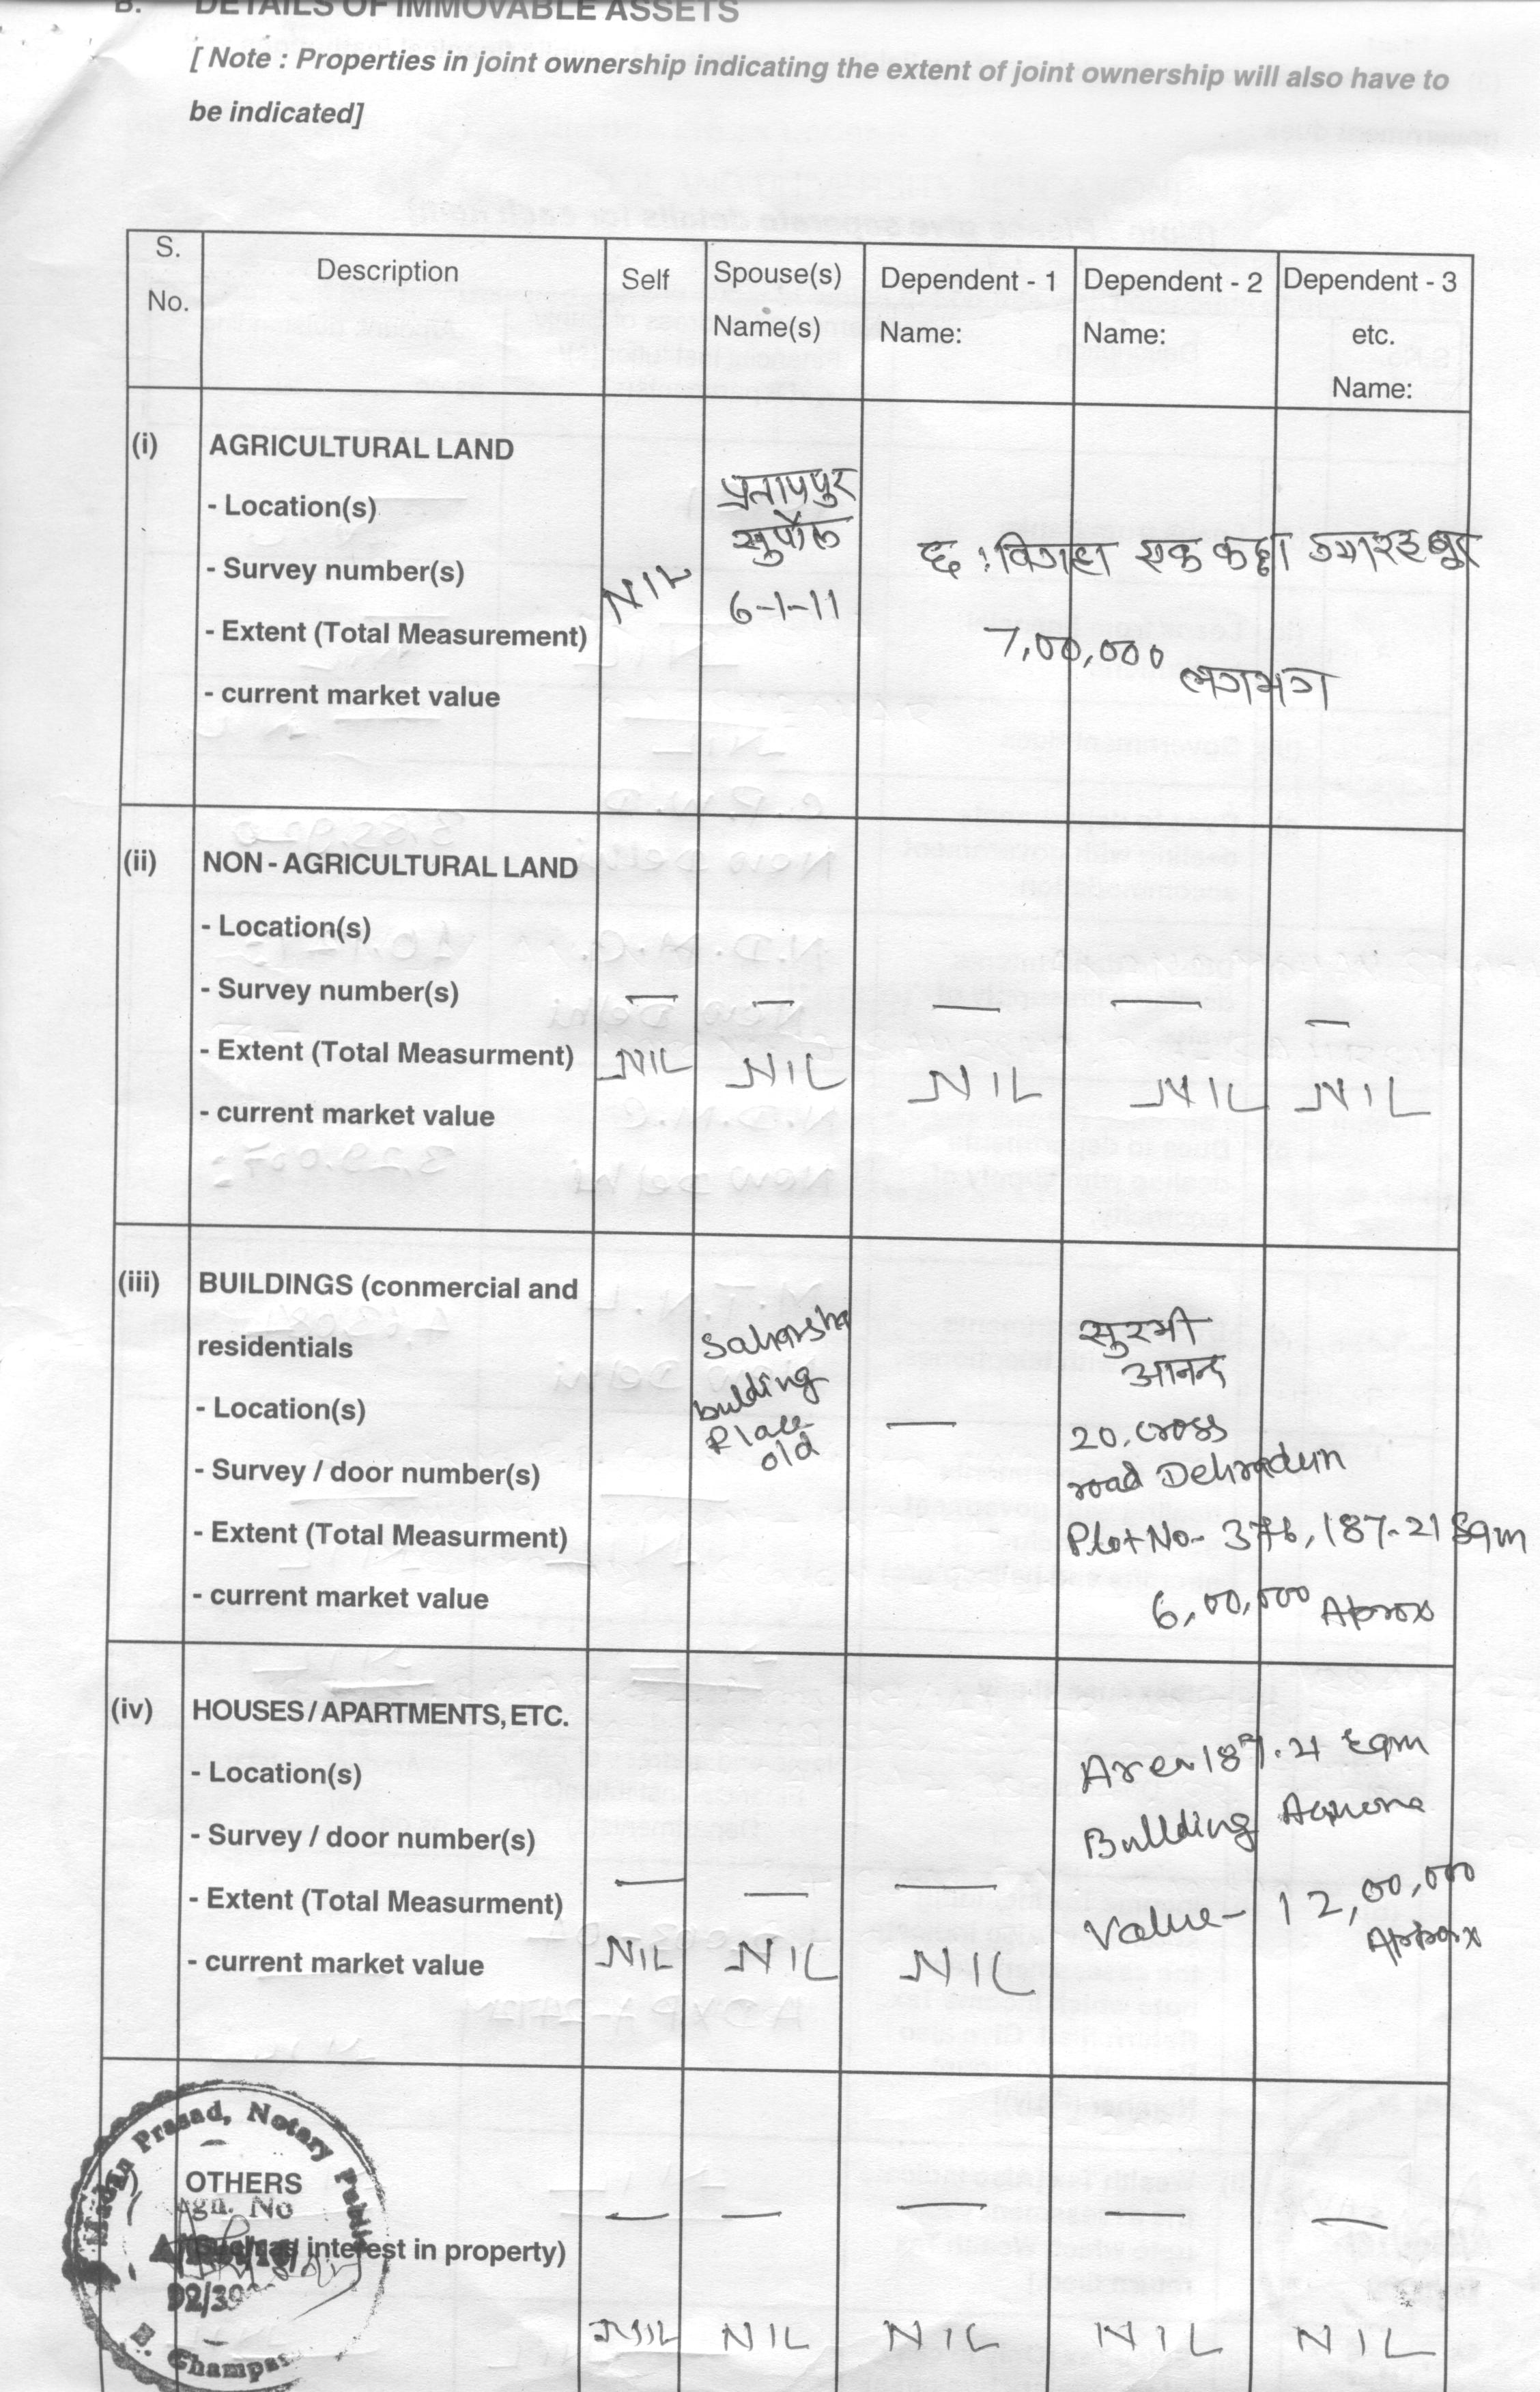 B. DETAILS OF IMMOVABLE ASSETS
[ Note : Properties in joint ownership indicating the extent of joint ownership will also have to
be indicated]
S.
No.
Description
Self
Spouse(s)
Name(s)
Dependent - 1
Name:
Dependent - 2
Name:
Dependent - 3
etc.
Name:
(i) AGRICULTURAL LAND
- Location(s)
- Survey number(s)
- Extent (Total Measurement)
- current market value
NIL
प्रतापपुर
सुपौल
6-1-11
छ: विगहा एक कट्ठा ग्यारह धुर
7,00,000
लगभग
(ii) NON - AGRICULTURAL LAND
- Location(s)
- Survey number(s)
- Extent (Total Measurment)
- current market value
NIL NIL NIL NIL NIL
(iii) BUILDINGS (conmercial and
residentials
- Location(s)
- Survey / door number(s)
- Extent (Total Measurment)
- current market value
Saharsha
building
Place
old
सुरभी
आनन्द
20, cross
road Dehradun
Plot No- 376, 187-21 Sqm
6,00,000 Aprox
(iv) HOUSES / APARTMENTS, ETC.
- Location(s)
- Survey / door number(s)
- Extent (Total Measurment)
- current market value
NIL NIL NIL
Area 187.21 Sqm
Building
Value- 12,00,000
Approx
OTHERS
interest in property)
NIL NIL NIL NIL NIL
Prasad, Notary Public
gn. No
92/39
Champa